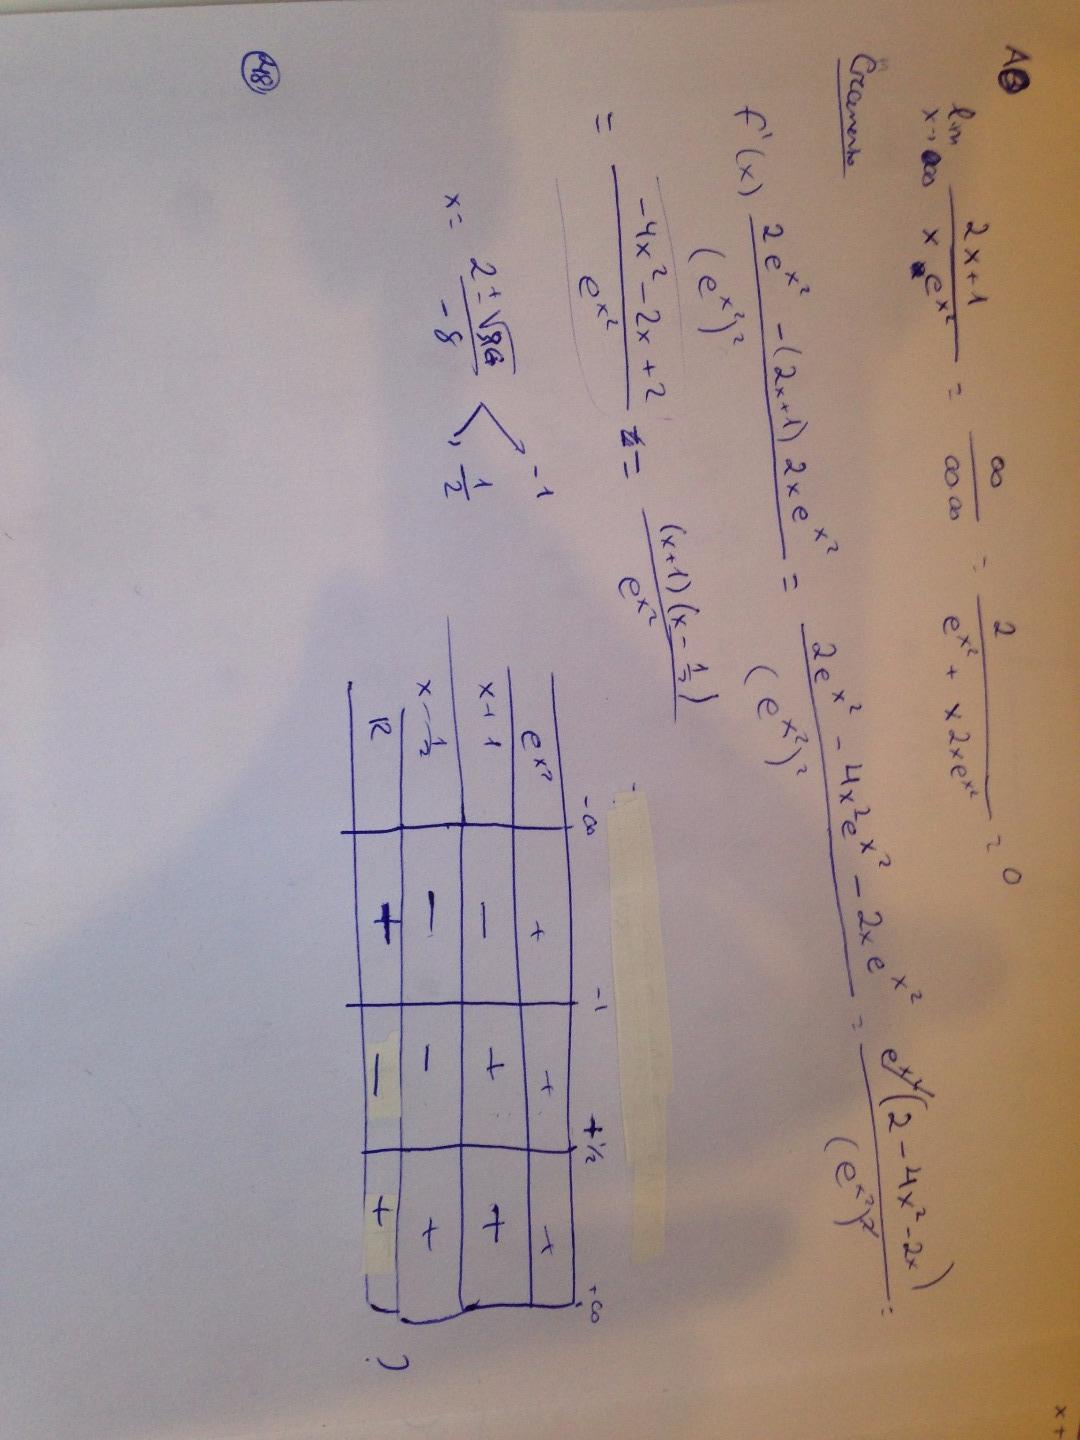 AB
lim x→∞ (2x+1)/(x e^{x²}) = ∞/(∞·∞) = 2/(e^{x²} + x2xe^{x²}) = 0
f'(x) (2e^{x²} - (2x+1) 2xe^{x²})/(e^{x²})² = (2e^{x²} - 4x²e^{x²} - 2xe^{x²})/(e^{x²})² = e^{x²}(2 - 4x² - 2x)/(e^{x²})² =
= (-4x² - 2x + 2)/e^{x²} = (x+1)(x - 1/2)/e^{x²}
x = (2 ± √36)/-8 < -1
1/2
-∞ -1 +1/2 +∞
e^{x²} + + +
x+1 - + +
x - 1/2 - - +
R + - + ?
248
x+